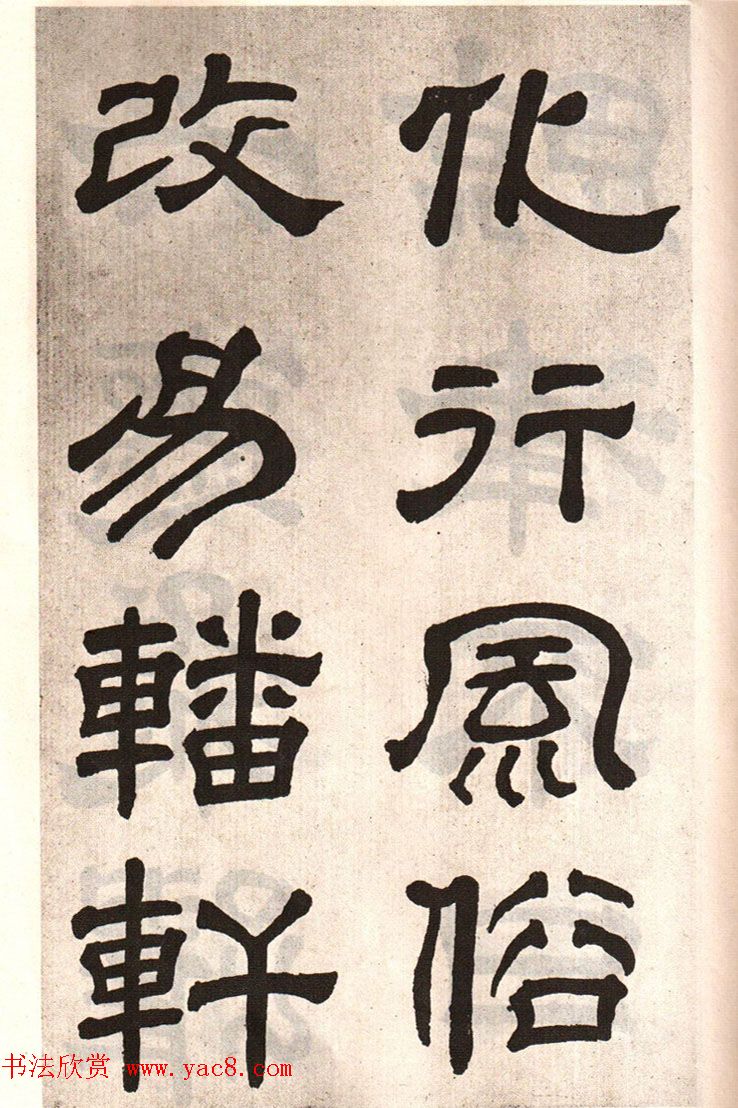 化行風俗
改易轓軒
书法欣赏 www.yac8.com